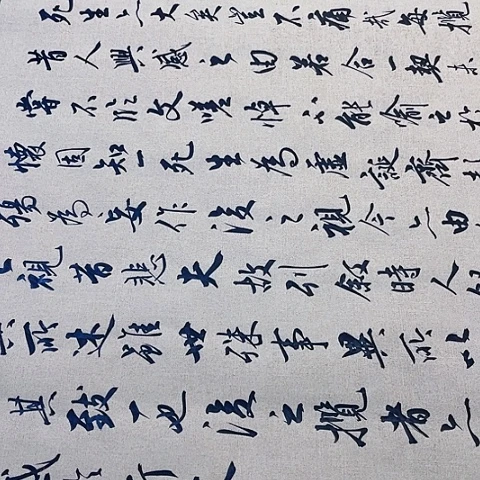 死生亦大矣豈不痛哉每攬
昔人興感之由若合一契未
嘗不臨文嗟悼不能喻之於
懷固知一死生為虛誕齊
殤為妄作後之視今亦由
視昔悲夫故列敘時人
所述雖世殊事異所以
其致一也後之攬者亦